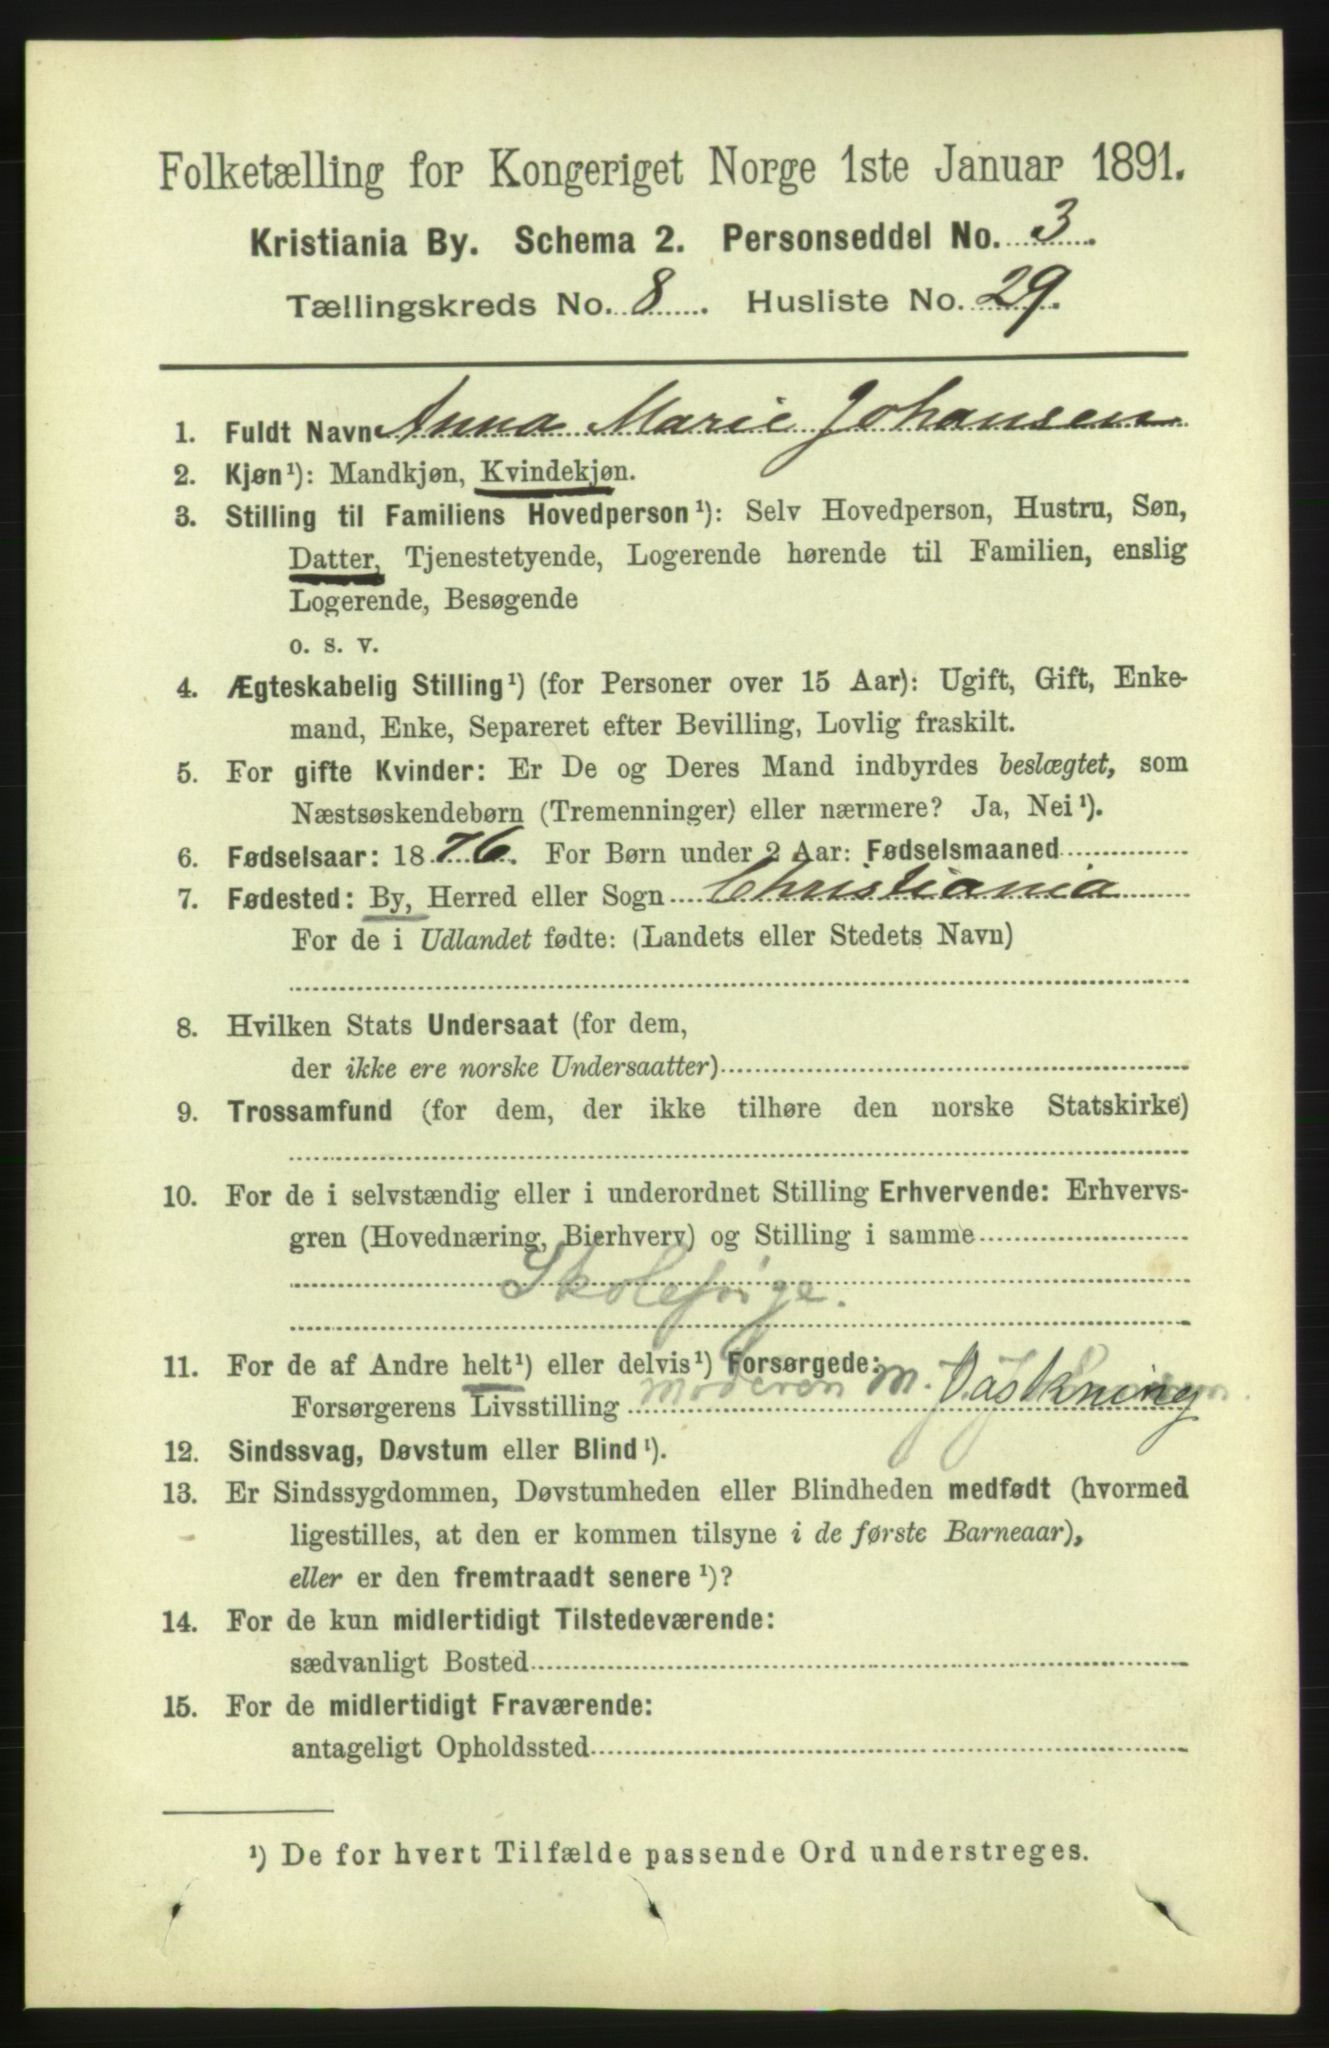 Folketælling for Kongeriget Norge 1ste Januar 1891.
Kristiania By. Schema 2. Personseddel No. 3.
Tællingskreds No. 8. Husliste No. 29.
1. Fuldt Navn Anna Marie Johansen
2. Kjøn¹): Mandkjøn, Kvindekjøn.
3. Stilling til Familiens Hovedperson¹): Selv Hovedperson, Hustru, Søn,
Datter, Tjenestetyende, Logerende hørende til Familien, enslig
Logerende, Besøgende
o. s. v.
4. Ægteskabelig Stilling¹) (for Personer over 15 Aar): Ugift, Gift, Enke-
mand, Enke, Separeret efter Bevilling, Lovlig fraskilt.
5. For gifte Kvinder: Er De og Deres Mand indbyrdes beslægtet, som
Næstsøskendebørn (Tremenninger) eller nærmere? Ja, Nei¹).
6. Fødselsaar: 1876. For Børn under 2 Aar: Fødselsmaaned
7. Fødested: By, Herred eller Sogn Christiania
For de i Udlandet fødte: (Landets eller Stedets Navn)
8. Hvilken Stats Undersaat (for dem,
der ikke ere norske Undersaatter)
9. Trossamfund (for dem, der ikke tilhøre den norske Statskirke)
10. For de i selvstændig eller i underordnet Stilling Erhvervende: Erhvervs-
gren (Hovednæring, Bierhverv) og Stilling i samme
Skolepige.
11. For de af Andre helt¹) eller delvis¹) Forsørgede:
Forsørgerens Livsstilling moderen M. Vaskning
12. Sindssvag, Døvstum eller Blind¹).
13. Er Sindssygdommen, Døvstumheden eller Blindheden medfødt (hvormed
ligestilles, at den er kommen tilsyne i de første Barneaar),
eller er den fremtraadt senere¹)?
14. For de kun midlertidigt Tilstedeværende:
sædvanligt Bosted
15. For de midlertidigt Fraværende:
antageligt Opholdssted
¹) De for hvert Tilfælde passende Ord understreges.